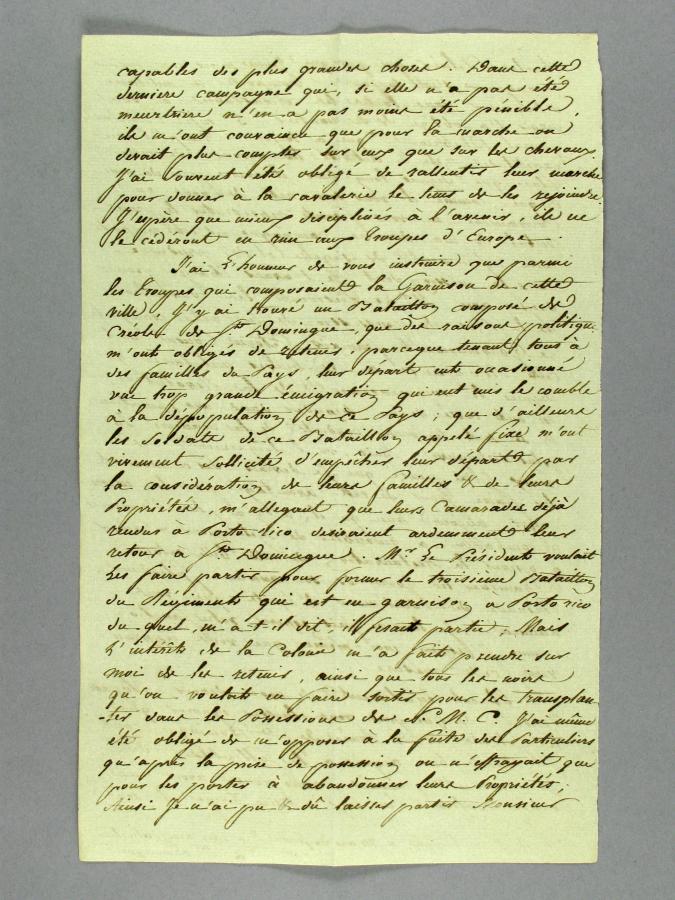 capables des plus grandes choses. Dans cette
derniere campagne qui, si elle n'a pas été
meurtriere n'en a pas moins été pénible,
ils m'ont convaincu que pour la marche on
devait plus compter sur eux que sur les chevaux.
J'ai souvent été obligé de rallentir leur marche
pour donner à la cavalerie le tems de les rejoindre.
J'espère que mieux disciplinés à l'avenir, ils ne
le céderont en rien aux Troupes d'Europe.
J'ai l'honneur de vous instruire que parmi
les Troupes qui composaient la Garnison de cette
ville, J'y ai trouvé un Bataillon composé de
Créoles de Sto Domingue, que des raisons politiques
m'ont obligés de retenir; parceque tenant tous à
des familles du Pays, leur départ eut occasionné
une trop grande émigration qui eut mis le comble
à la dépopulation de ce Pays; que d'ailleurs
les Soldats de ce Bataillon appelé fixe m'ont
vivement sollicité d'empêcher leur départ par
la considération de leurs familles & de leurs
Propriétés, m'allegant que leurs Camarades déjà
rendus à Porto rico desiraient ardemment leur
retour à Sto Domingue. Mr. Le Président voulait
les faire partir pour former le troisième Bataillon
du Régiment qui est en garnison à Porto rico
du quel, m'a t-il dit, il fesait partie, Mais
l'intérêt de la Colonie m'a fait prendre sur
moi de les retenir, ainsi que tous les noirs
qu'on voulait en faire sortir pour les transplan-
-ter dans les Possessions de S. M. C. J'ai même
été obligé de m'opposer à la fuite des Particuliers
qu'après la prise de possession on n'effrayait que
pour les porter à abandonner leurs Propriétés;
Ainsi Je n'ai pu & dû laisser partir Monsieur